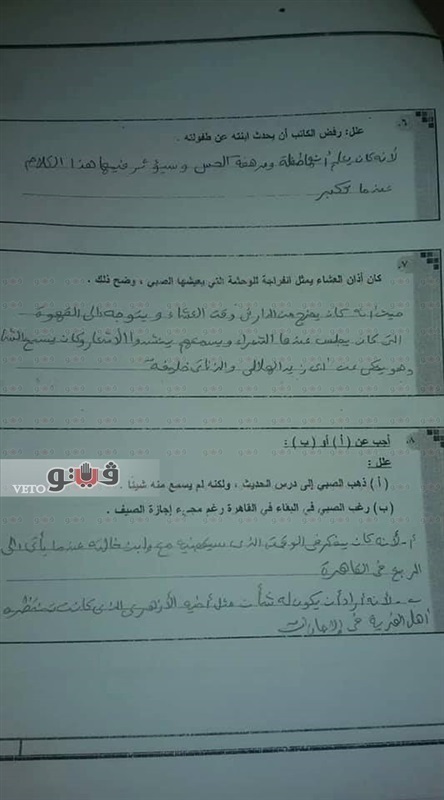 ٠٦
علل: رفض الكاتب أن يحدث ابنته عن طفولته .
لأنه كان يعلم أنها طفلة ومرهفة الحس وسيؤثر فيها هذا الكلام
عندما تكبر
٠٧
كان أذان العشاء يمثل انفراجة للوحشة التي يعيشها الصبي ، وضح ذلك .
حيث أنه كان يخرج من الدار في وقت العشاء ويتوجه إلى القهوة
التى كان يجلس عندها الشعراء ويسمعهم ينشدوا الأشعار وكان يسمع الشاعر
وهو يحكى عن أبى زيد الهلالى والزناتى خليفة
٠٨
أجب عن ( أ ) أو ( ب ) :
علل :
( أ ) ذهب الصبي إلى درس الحديث ، ولكنه لم يسمع منه شيئا .
( ب ) رغب الصبي في البقاء في القاهرة رغم مجيء إجازة الصيف .
أ - لأنه كان يفكر فى الوقت الذى سيقضيه مع وابن خالته عندما يأتى إلى
الربع فى القاهرة
ب - لأنه أراد أن يكون له شأن مثل أخيه الأزهرى الذى كانت تنتظره
أهل القرية فى الإجازات
ڤيتو
VETO